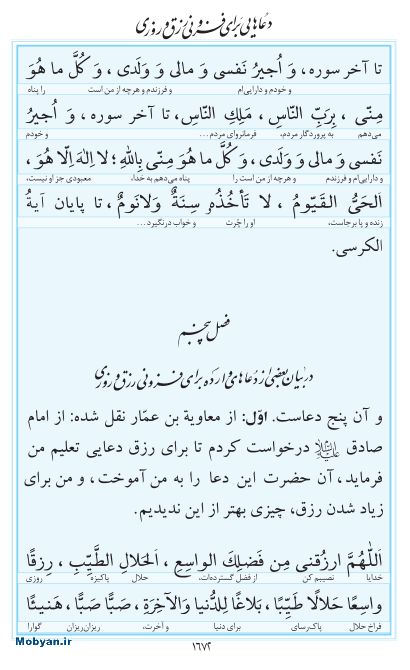 دعاهایی برای فزونی رزق و روزی
تا آخر سوره، وَ اُجيرُ نَفسى وَ مالى وَ وَلَدى، وَ كُلَّ ما هُوَ
و خودم و دارایی‌ام و فرزندم و هرچه از من است را پناه
مِنّى، بِرَبِّ النّاسِ، مَلِكِ النّاسِ، تا آخر سوره، وَ اُجيرُ
می‌دهم به پروردگار مردم، فرمانروای مردم... و خودم
نَفسى وَ مالى وَ وَلَدى، وَ كُلَّ ما هُوَ مِنّى بِاللهِ؛ لا اِلهَ اِلّا هُوَ،
و دارایی‌ام و فرزندم و هرچه از من است را پناه می‌دهم به خدا، معبودی جز او نیست،
اَلحَىُّ القَيّومُ، لا تَأخُذُهُ سِنَةٌ وَلانَومٌ، تا پایان آیةُ
زنده و پا برجاست، او را چُرت و خواب درنگیرد...
الکرسی.
فصل پنجم
در بیان بعضی از دعاهای وارده برای فزونی رزق و روزی
و آن پنج دعاست. اوّل: از معاویة بن عمّار نقل شده: از امام
صادق علیه‌السلام درخواست کردم تا برای رزق دعایی تعلیم من
فرماید، آن حضرت این دعا را به من آموخت، و من برای
زیاد شدن رزق، چیزی بهتر از این ندیدیم.
اَللّٰهُمَّ ارزُقنى مِن فَضلِكَ الواسِعِ، اَلحَلالِ الطَّيِّبِ، رِزقًا
خدایا نصیبم کن از فضل گسترده‌ات، حلال پاکیزه روزی
واسِعًا حَلالًا طَيِّبًا، بَلاغًا لِلدُّنيا وَالآخِرَةِ، صَبًّا صَبًّا، هَنيئًا
فراخ حلال پاک رسای برای دنیا و آخرت، ریزان ریزان گوارا
Mobyan.ir
١٦٧٢